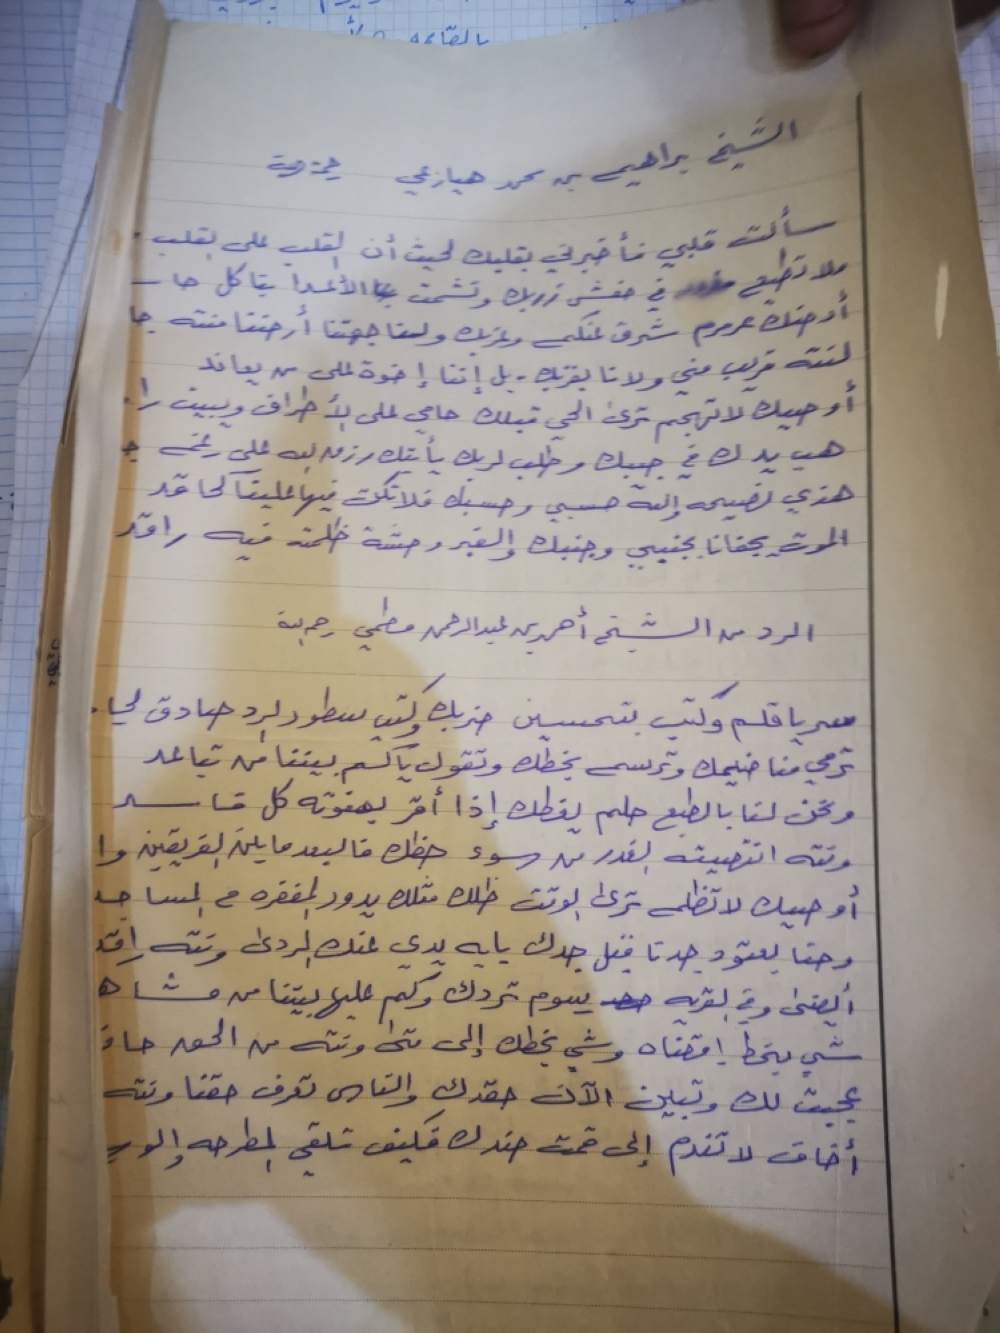 بالقايمه
الشيخ براهيم بن محمد هيازعي
سألت قلبي فأخبرني بقلبك لحيث أن القلب على لقلب
ولا تطيع في خفش زربك وتشمت الأعدا بقا كل حا
أدخنك عرمرم شرق عنكم وغربك ولعنا جهتنا أرضنا منته جا
لنته قريب مني ولانا بقربك . بل إننا إخوة على من يعاند
أوصيك لا تهجم ترى الحي قبلك حامي على لأطراف ويبيت را
هب يدك في جيبك وطلب لربك يأتيك رزق الله على رغم
هذي نصيحه والله حسبي وحسبك فلا تكت فيها علينا لحاقد
الموت يجفانا بجنبي وجنبك والقبر وحشة ظلمته فيه راقد
الرد من الشيخ أحمد بن عبدالرحمن مطمي رحمه الله
سر يا قلم وكتب بتحسين ضربك وكتب سطور لرد صادق لحا
ترمي منا ضيمك وترسم بخطك وتقول يا كم بيننا من تباعد
ونحن لنا بالطبع حلم يغطك إذا أقر بهفوته كل فاسد
ونته انتصيته لقدر من سوء حظك فالبعد ما بين لفريقين وا
أوصيك لا تظلم ترى لوقت ظلك مثلك يدور لمغفره في لمساجد
وحنا بعتود جدنا قبل جدك بابه يدي عنك لردى ونته راقد
أيضى وفي لقريه بيوم تردك وكم عليها بيننا من مشاهد
شي بخط اقضاه وشي بخطك إلى متى ونته من الحق
عجبت لك وتبين الآن حقدك والناس تعرف حقنا ونته
أخاف لا تندم إلى قمت ضدك فكيف تلقى لمطرحه والو